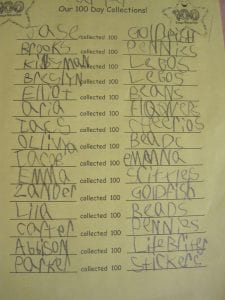 100
Our 100 Day Collections!
100
Jase collected 100 GOLDFISH
Brooks collected 100 PENNIES
Kinsman collected 100 LEGOS
Breslyn collected 100 LEGOS
Elliot collected 100 BEANS
aria collected 100 FLOWERS
collected 100 cheerios
OLIVIA collected 100 BEADS
Jacoe collected 100 emANNA
EMMA collected 100 SKITTLES
Zander collected 100 GOLDFISH
Lila collected 100 BEADS
carter collected 100 PENNIES
Addison collected 100 LifeBriter
Parker collected 100 Stickers